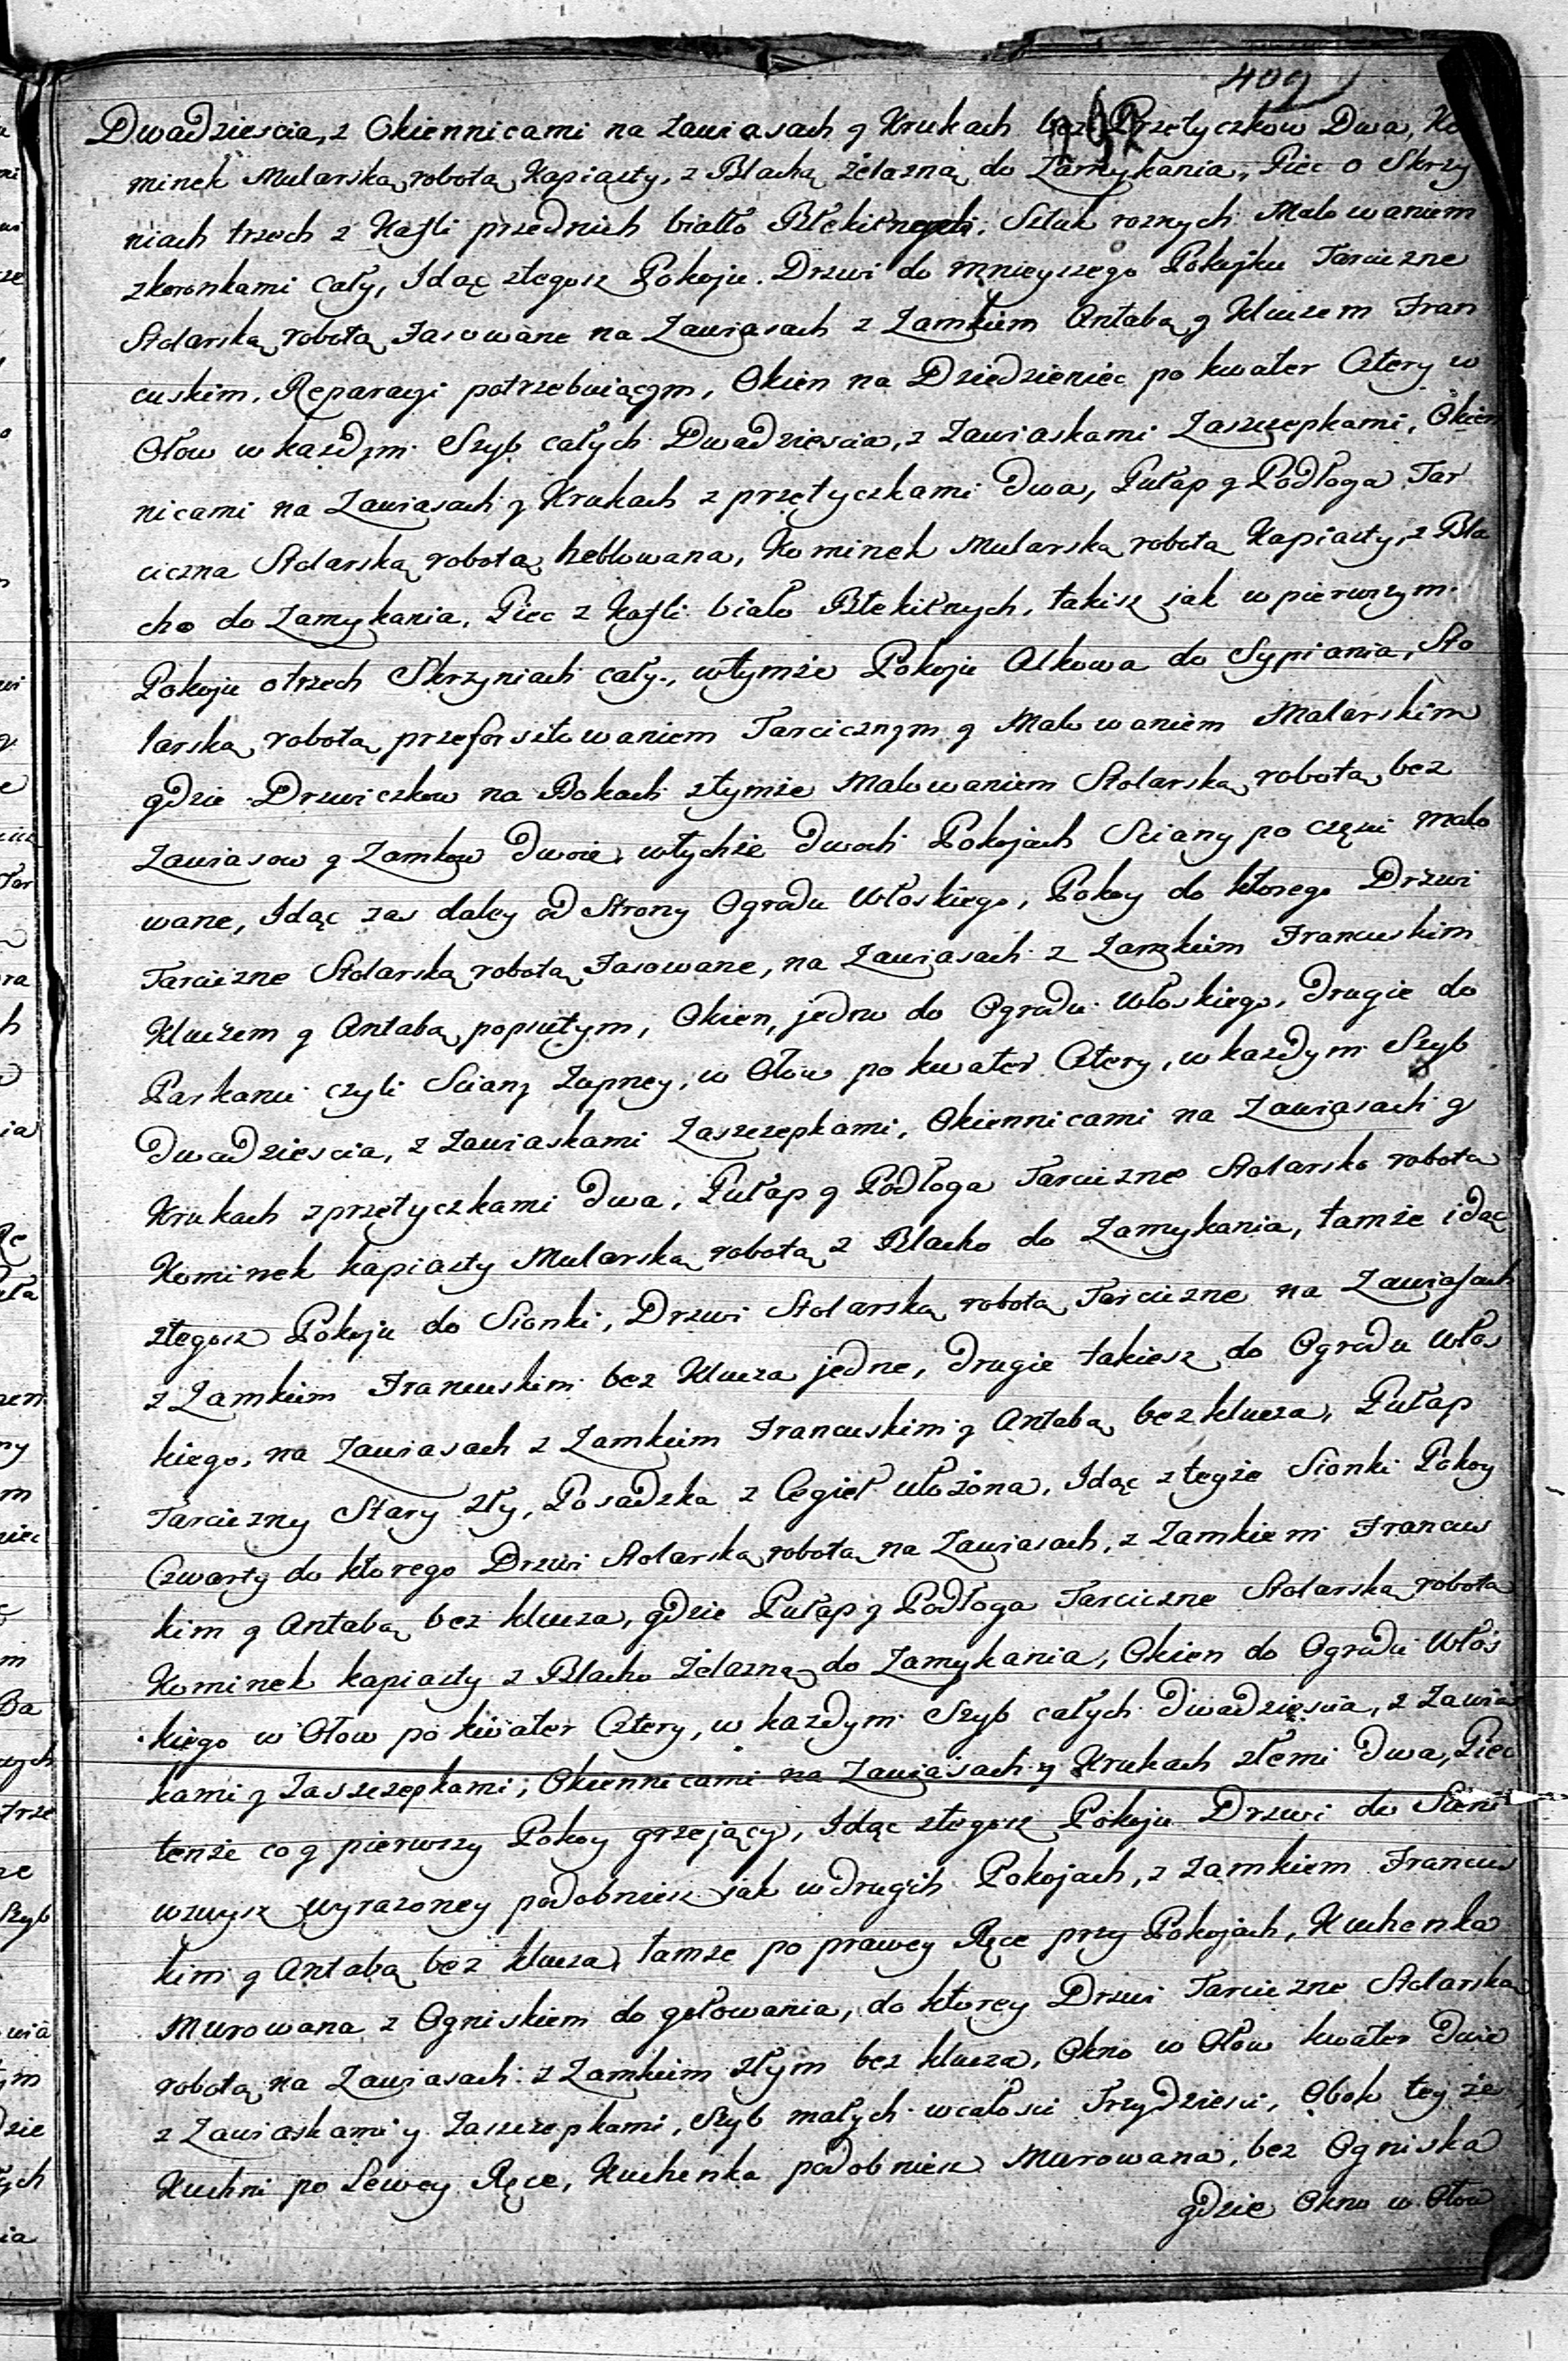 409
Dwadziescia, z Okiennicami na Zawiasach y Krukach bez Przetyczkow Dwa, Ko
minek Mularską robotą Kapiasty, z Blachą żelazną do Zamykania, Piec o Skrzy
niach trzech z Kafli przednich biało Błękitnych, Sztuk roznych Malowaniem
zkoronkami cały, Idąc ztegosz Pokoju. Drzwi do mnieyszego Pokoyku Tarciczne
Stolarską robotą Fasowane na Zawiasach z Zamkiem Antabą y Kluczem Fran
cuskim, Reparacyi potrzebuiącym, Okien na Dziedzieniec po kwater Cztery w
Ołow w kazdym Szyb całych Dwadziescia, z Zawiaskami Zaszczepkami, Okien
nicami na Zawiasach y Krukach z przetyczkami Dwa, Pułap y Podłoga Tar
ciczna Stolarską robotą heblowana, Kominek Mularską robotą Kapiasty, z Bla
cho do Zamykania, Piec z Kafli biało Błekitnych, takisz jak w pierwszym
Pokoju o trzech Skrzyniach cały, wtymże Pokoju Alkowa do Sypiania, Sto
larską robotą przeforsztowaniem Tarcicznym y Malowaniem Malarskim
gdzie Drzwiczkow na Bokach ztymże Malowaniem Stolarską robotą bez
Zawiasow y Zamkow Dwoie, wtychże Dwoch Pokojach Sciany po częsci malo
wane, Idąc zas daley od Strony Ogrodu Włoskiego, Pokoy do ktorego Drzwi
Tarciczne Stolarską robotą Fasowane, na Zawiasach z Zamkiem Francuskim
Kluczem y Antabą popsutym, Okien, jedno do Ogrodu Włoskiego, drugie do
Parkanu czyli Sciany Zupney, w Ołow po kwater Cztery, w kazdym Szyb
Dwadziescia, z Zawiaskami Zaszczepkami, Okiennicami na Zawiasach y
Krukach zprzetyczkami Dwa, Pułap y Podłoga Tarciczne Stolarsko robotą
Kominek kapiasty Mularską robotą z Blacho do Zamykania, tamże idąc
ztegosz Pokoju do Sionki, Drzwi Stolarską robotą Tarciczne na Zawiasach
z Zamkiem Francuskim bez Klucza jedne, drugie takiesz do Ogrodu Włos
kiego, na Zawiasach z Zamkiem Francuskim y Antabą bez klucza, Pułap
Tarciczny Stary zły, Posadzka z Cegieł ułożona, Idąc zteyże Sionki Pokoy
Czwarty do ktorego Drzwi Stolarską robotą na Zawiasach, z Zamkiem Francus
kim y Antabą bez klucza, gdzie Pułap y Podłoga Tarciczne Stolarską robotą
Kominek kapiasty z Blacho żelazną do Zamykania, Okien do Ogrodu Włos
kiego w Ołow po kwater Cztery, w kazdym Szyb całych Dwadziescia, z Zawias
kami y Zaszczepkami, Okiennicami na Zawiasach y Krukach złemi Dwa, Piec
tenże co y pierwszy Pokoy grzejący, Idąc ztegosz Pokoju Drzwi do Sieni
wzwysz wyrazoney podobniesz jak w drugich Pokojach, z Zamkiem Francus
kim y Antabą bez klucza, tamże po prawey Ręce przy Pokojach, Kuchenka
Murowana z Ogniskiem do gotowania, do ktorey Drzwi Tarciczne Stolarską
robotą na Zawiasach z Zamkiem złym bez klucza, Okno w Ołow kwater Dwie
z Zawiaskami y Zaszczepkami, Szyb małych wcałosci Trzydziesci, Obok teyże
Kuchni po Lewey Ręce, Kuchenka podobniesz Murowana, bez Ogniska
gdzie Okno w Ołow